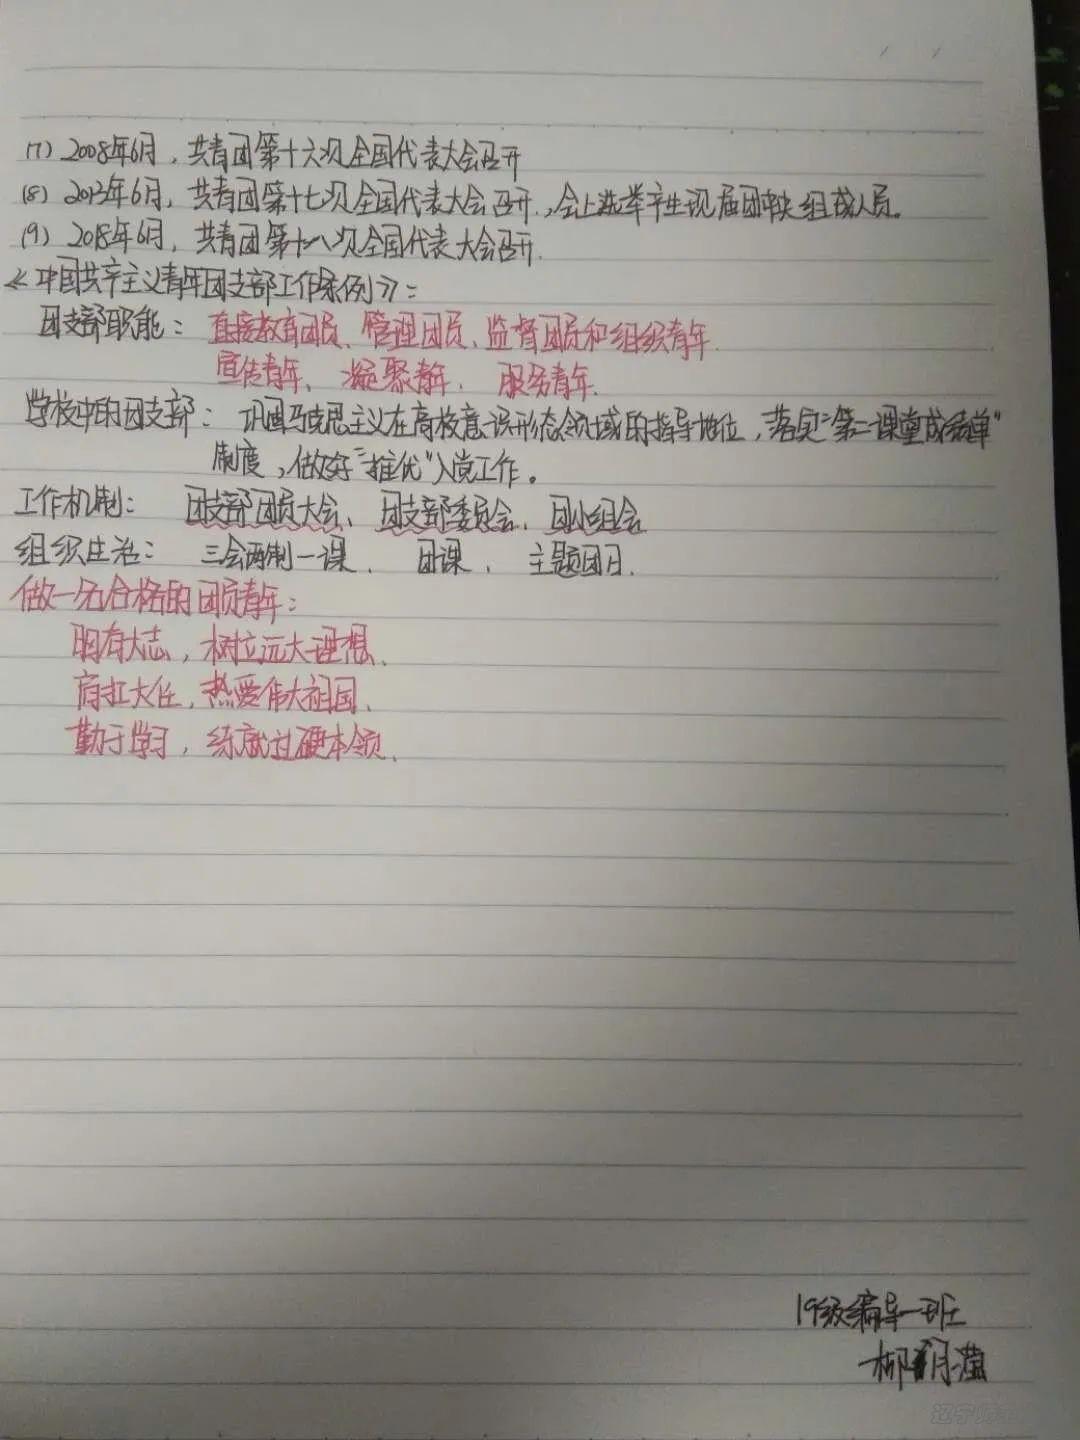 (7) 2008年6月，共青团第十六次全国代表大会召开
(8) 2013年6月，共青团第十七次全国代表大会召开，会上选举产生现届团中央组成人员。
(9) 2018年6月，共青团第十八次全国代表大会召开.
《中国共产主义青年团支部工作条例》：
团支部职能：直接教育团员、管理团员、监督团员和组织青年.
宣传青年、凝聚青年、服务青年.
学校中的团支部：巩固马克思主义在高校意识形态领域的指导地位，落实“第二课堂成绩单”
制度，做好“推优”入党工作。
工作机制：团支部团员大会、团支部委员会、团小组会
组织生活：三会两制一课、团课、主题团日.
做一名合格的团员青年：
胸有大志，树立远大理想、
肩扛大任，热爱伟大祖国、
勤于学习，练就过硬本领、
19级编导一班
柳月滢
辽宁师